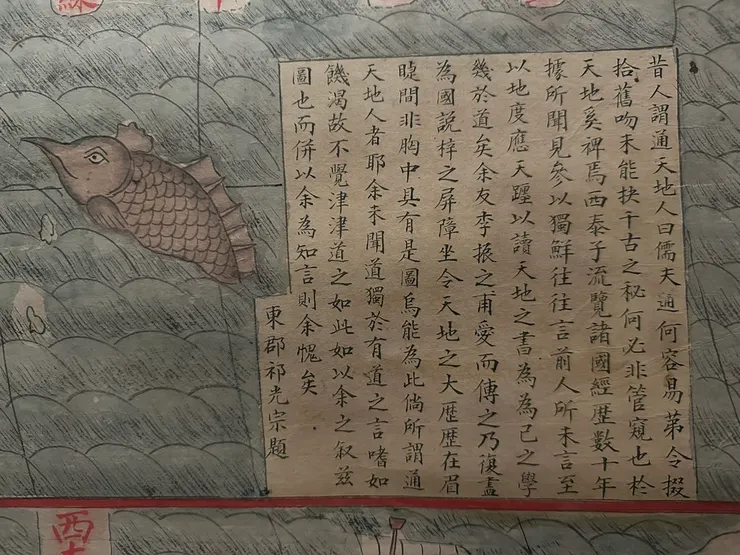 昔人謂通天地人曰儒夫通何容易苐令掇
拾舊吻未能抉千古之秘何必非管窺也於
天地奚裨焉西泰子流覽諸國經歴數十年
據所聞見參以獨鮮往往言前人所未言至
以地度應天躔以讀天地之書為為己之學
幾於道矣余友李振之甫愛而傳之乃復盡
為國說梓之屏障坐令天地之大歴歴在眉
睫間非胸中具有是圖烏能為此倘所謂通
天地人者耶余未聞道獨於有道之言嗜如
饑渴故不覺津津道之如此如以余之叙茲
圖也而併以余為知言則余愧矣
東郡祁光宗題
西